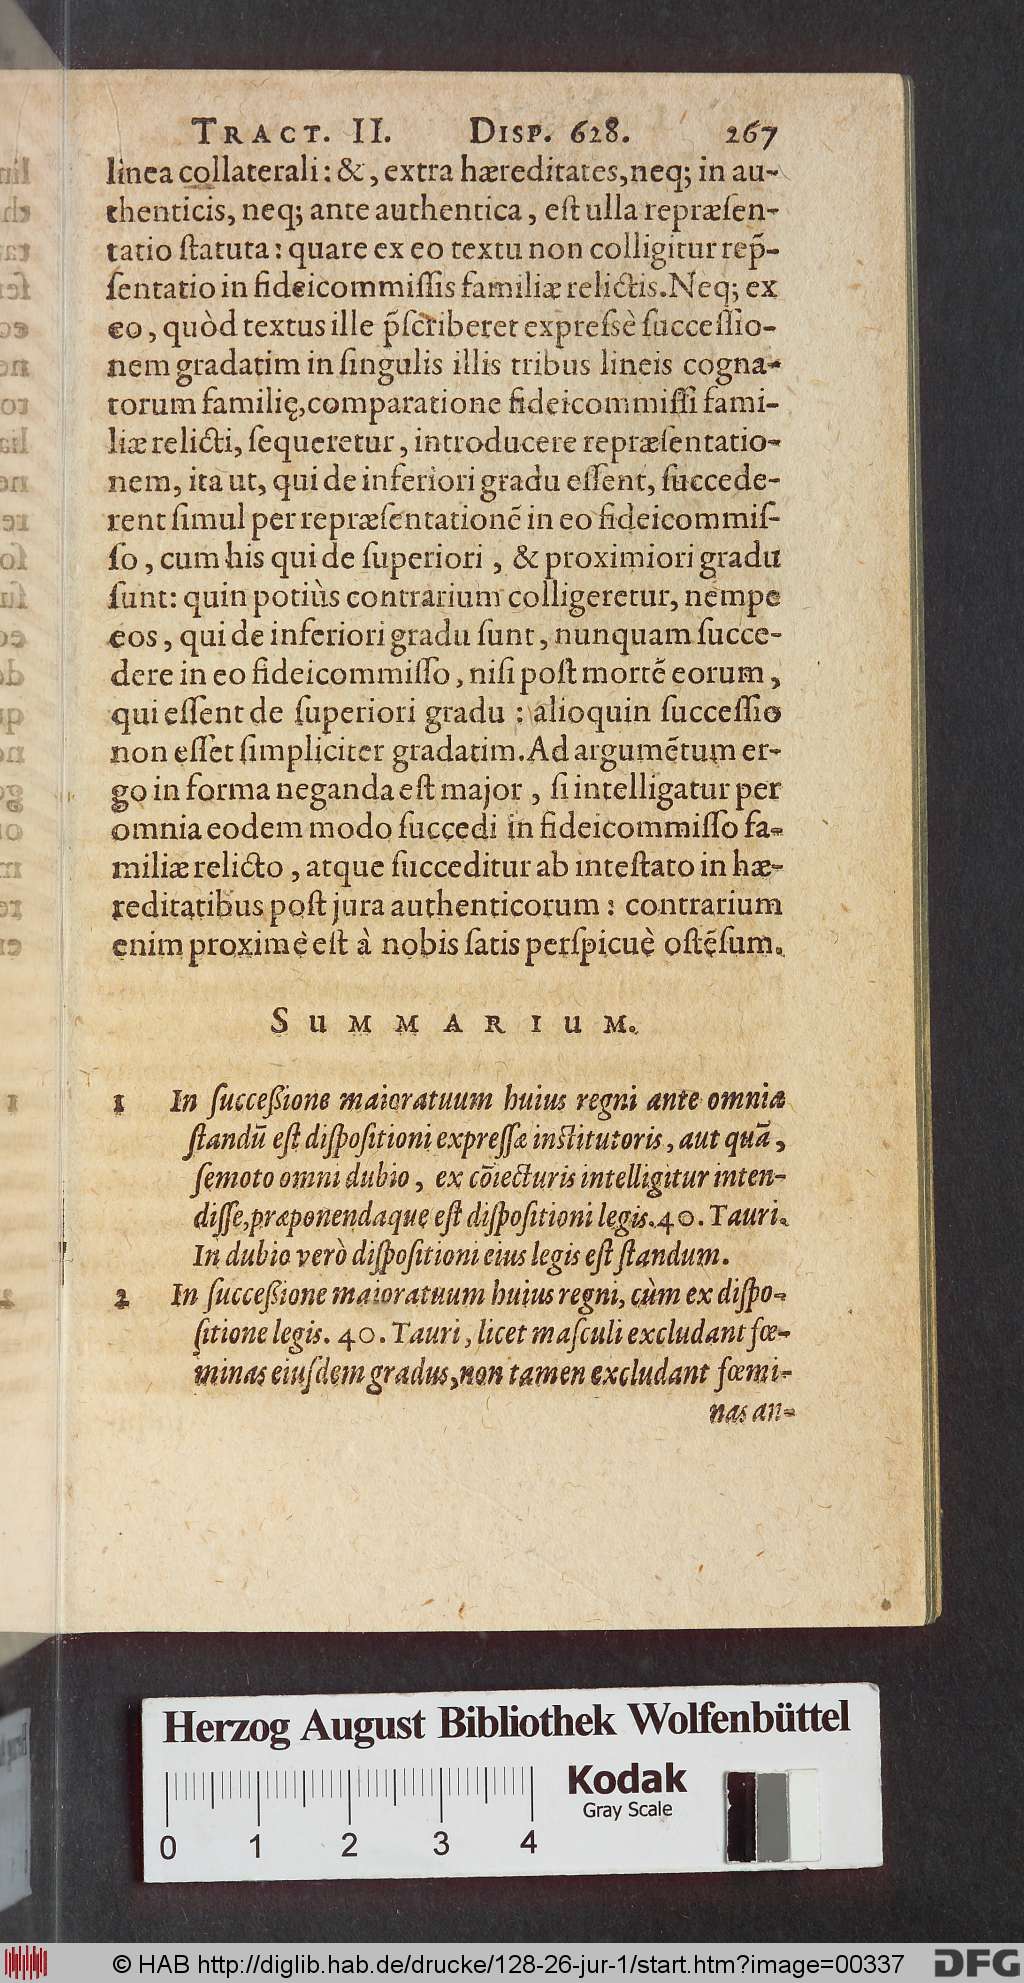 TRACT. II. DISP. 628. 267
linea collaterali: &, extra hæreditates, neq; in au-
thenticis, neq; ante authentica, eſt ulla repræſen-
tatio ſtatuta: quare ex eo textu non colligitur rep̃-
ſentatio in fideicommiſſis familiæ relictis. Neq; ex
eo, quòd textus ille p̃ſcriberet expreſsè ſucceſſio-
nem gradatim in ſingulis illis tribus lineis cogna-
torum familię, comparatione fideicommiſſi fami-
liæ relicti, ſequeretur, introducere repræſentatio-
nem, ita ut, qui de inferiori gradu eſſent, ſuccede-
rent ſimul per repræſentationẽ in eo fideicommiſ-
ſo, cum his qui de ſuperiori, & proximiori gradu
ſunt: quin potiùs contrarium colligeretur, nempe
eos, qui de inferiori gradu ſunt, nunquam ſucce-
dere in eo fideicommiſſo, niſi poſt mortẽ eorum,
qui eſſent de ſuperiori gradu: alioquin ſucceſſio
non eſſet ſimpliciter gradatim. Ad argumẽtum er-
go in forma neganda eſt major, ſi intelligatur per
omnia eodem modo ſuccedi in fideicommiſſo fa-
miliæ relicto, atque ſucceditur ab inteſtato in hæ-
reditatibus poſt jura authenticorum: contrarium
enim proximè eſt à nobis ſatis perſpicuè oſtẽſum.
SUMMARIUM.
1 In ſucceßione maioratuum huius regni ante omnia
ſtandũ eſt diſpoſitioni expreſſæ inſtitutoris, aut quã,
ſemoto omni dubio, ex cõiecturis intelligitur inten-
diſſe, præponendaque eſt diſpoſitioni legis. 40. Tauri.
In dubio verò diſpoſitioni eius legis eſt ſtandum.
2 In ſucceßione maioratuum huius regni, cùm ex diſpo-
ſitione legis. 40. Tauri, licet maſculi excludant fœ-
minas eiuſdem gradus, non tamen excludant fœmi-
nas an-
Herzog August Bibliothek Wolfenbüttel
Kodak
Gray Scale
0 1 2 3 4
© HAB http://diglib.hab.de/drucke/128-26-jur-1/start.htm?image=00337
DFG